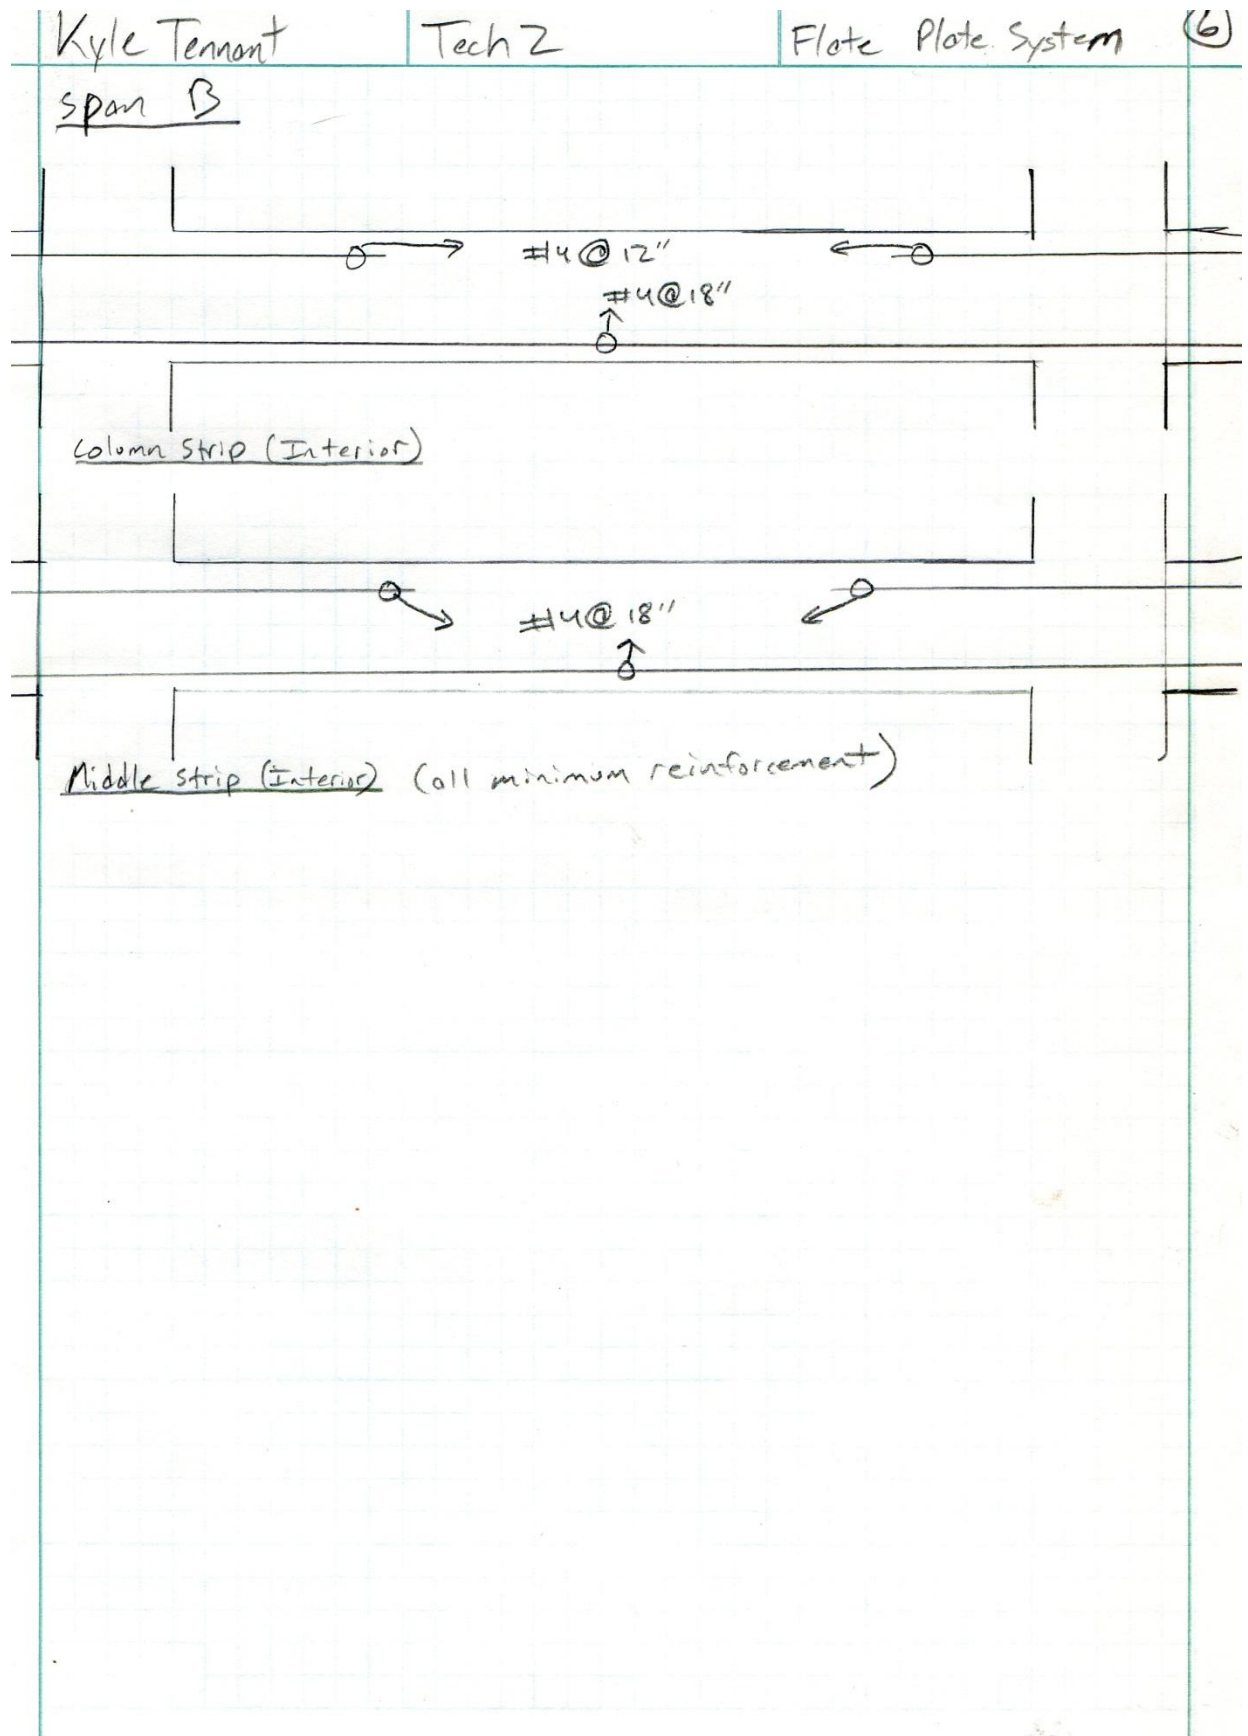 Kyle Tennant Tech 2 Flate Plate System 6
span B
#4@12"
#4@18"
Column Strip (Interior)
#4@18"
Middle Strip (Interior) (all minimum reinforcement)